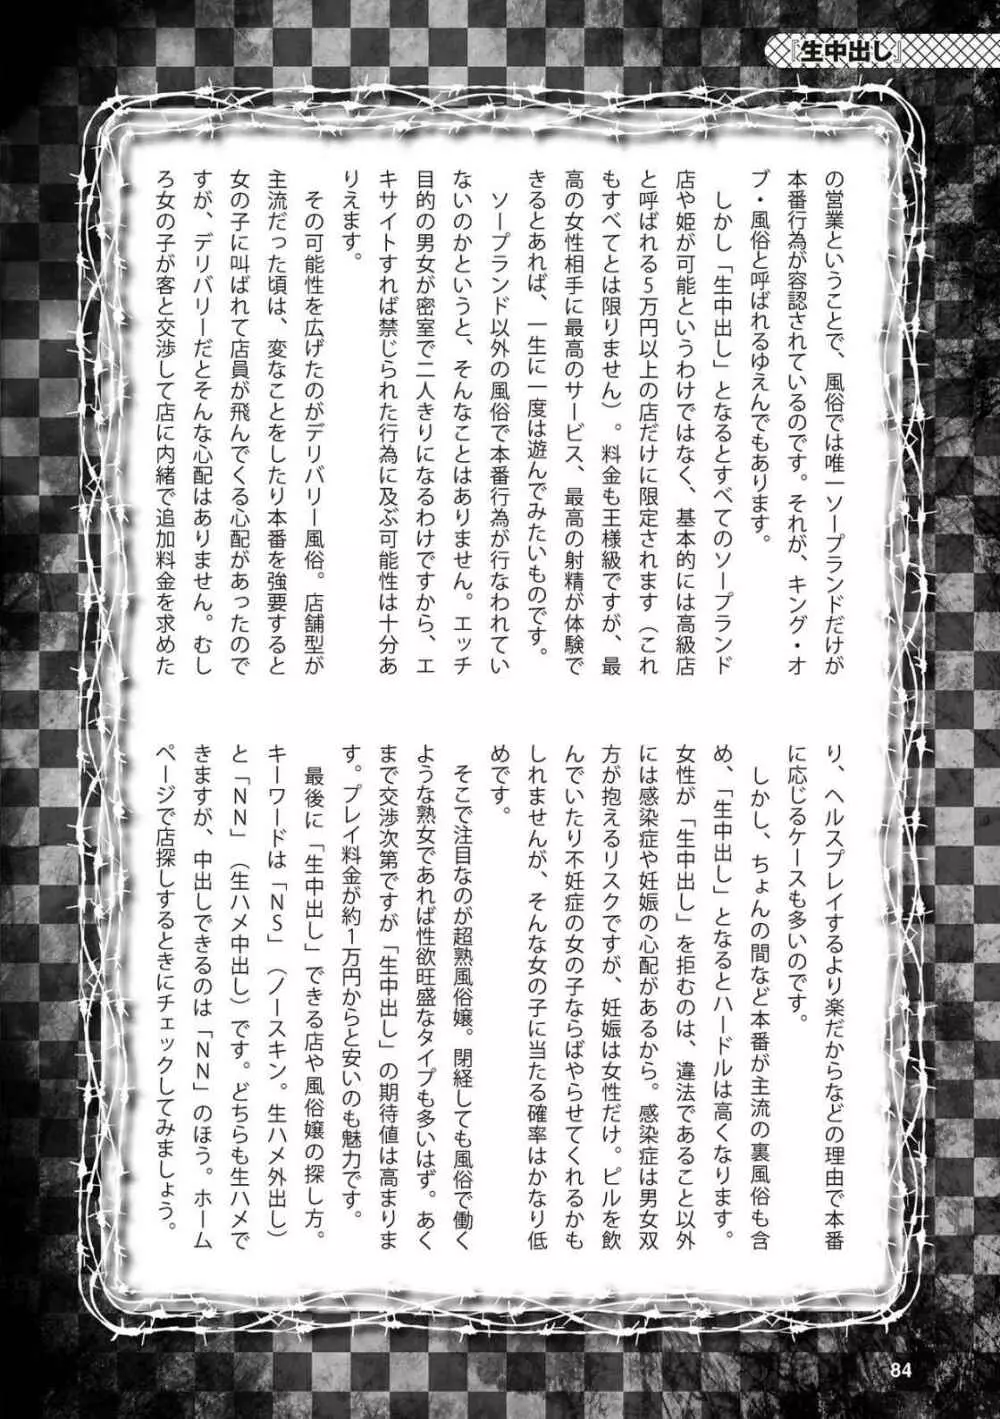 『生中出し』
の営業ということで、風俗では唯一ソープランドだけが
本番行為が容認されているのです。それが、キング・オ
ブ・風俗と呼ばれるゆえんでもあります。
しかし「生中出し」となるとすべてのソープランド
店や姫が可能というわけではなく、基本的には高級店
と呼ばれる5万円以上の店だけに限定されます（これ
もすべてとは限りません）。料金も王様級ですが、最
高の女性相手に最高のサービス、最高の射精が体験で
きるとあれば、一生に一度は遊んでみたいものです。
ソープランド以外の風俗で本番行為が行なわれてい
ないのかというと、そんなことはありません。エッチ
目的の男女が密室で二人きりになるわけですから、エ
キサイトすれば禁じられた行為に及ぶ可能性は十分あ
りえます。
その可能性を広げたのがデリバリー風俗。店舗型が
主流だった頃は、変なことをしたり本番を強要すると
女の子に叫ばれて店員が飛んでくる心配があったので
すが、デリバリーだとそんな心配はありません。むし
ろ女の子が客と交渉して店に内緒で追加料金を求めた
り、ヘルスプレイするより楽だからなどの理由で本番
に応じるケースも多いのです。
しかし、ちょんの間など本番が主流の裏風俗も含
め、「生中出し」となるとハードルは高くなります。
女性が「生中出し」を拒むのは、違法であること以外
には感染症や妊娠の心配があるから。感染症は男女双
方が抱えるリスクですが、妊娠は女性だけ。ピルを飲
んでいたり不妊症の女の子ならばやらせてくれるかも
しれませんが、そんな女の子に当たる確率はかなり低
めです。
そこで注目なのが超熟風俗嬢。閉経しても風俗で働く
ような熟女であれば性欲旺盛なタイプも多いはず。あく
まで交渉次第ですが「生中出し」の期待値は高まりま
す。プレイ料金が約1万円からと安いのも魅力です。
最後に「生中出し」できる店や風俗嬢の探し方。
キーワードは「NS」（ノースキン。生ハメ外出し）
と「NN」（生ハメ中出し）です。どちらも生ハメで
きますが、中出しできるのは「NN」のほう。ホーム
ページで店探しするときにチェックしてみましょう。
84